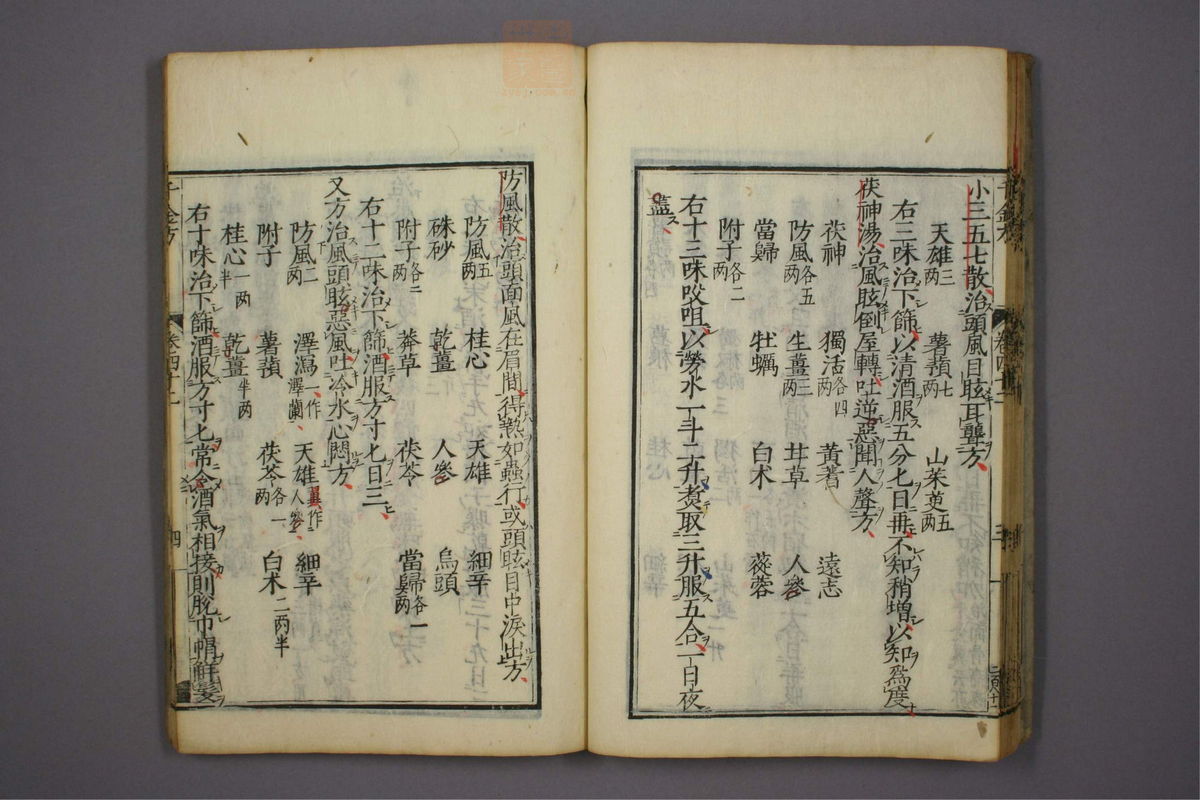 小三五七散治頭風目眩耳聾方
天雄三兩 薯蕷七兩 山茱萸五兩
右三味治下篩以清酒服五分匕日再不知稍增以知爲度
茯神湯治風眩倒屋轉吐逆惡聞人聲方
茯神 獨活各四兩 黃耆 遠志
防風各五兩 生薑三兩 甘草 人參
當歸 牡蠣 白术 蓯蓉
附子各二兩
右十三味㕮咀以勞水一斗二升煑取三升服五合一日夜
盡
防風散治頭面風在眉間得熱如蟲行或頭眩目中淚出方
防風五兩 桂心 天雄 細辛
硃砂 乾薑 人參 烏頭
附子各二兩 莽草 茯苓 當歸各一兩
右十二味治下篩酒服方寸匕日三
又方治風頭眩惡風吐冷水心悶方
防風二兩 澤瀉一作澤蘭 天雄翼作人參 細辛
附子 薯蕷 茯苓各一兩 白术二兩半
桂心一兩半 乾薑半兩
右十味治下篩酒服方寸匕常令酒氣相接則脫巾帽解髮
千金方 卷四十二 四